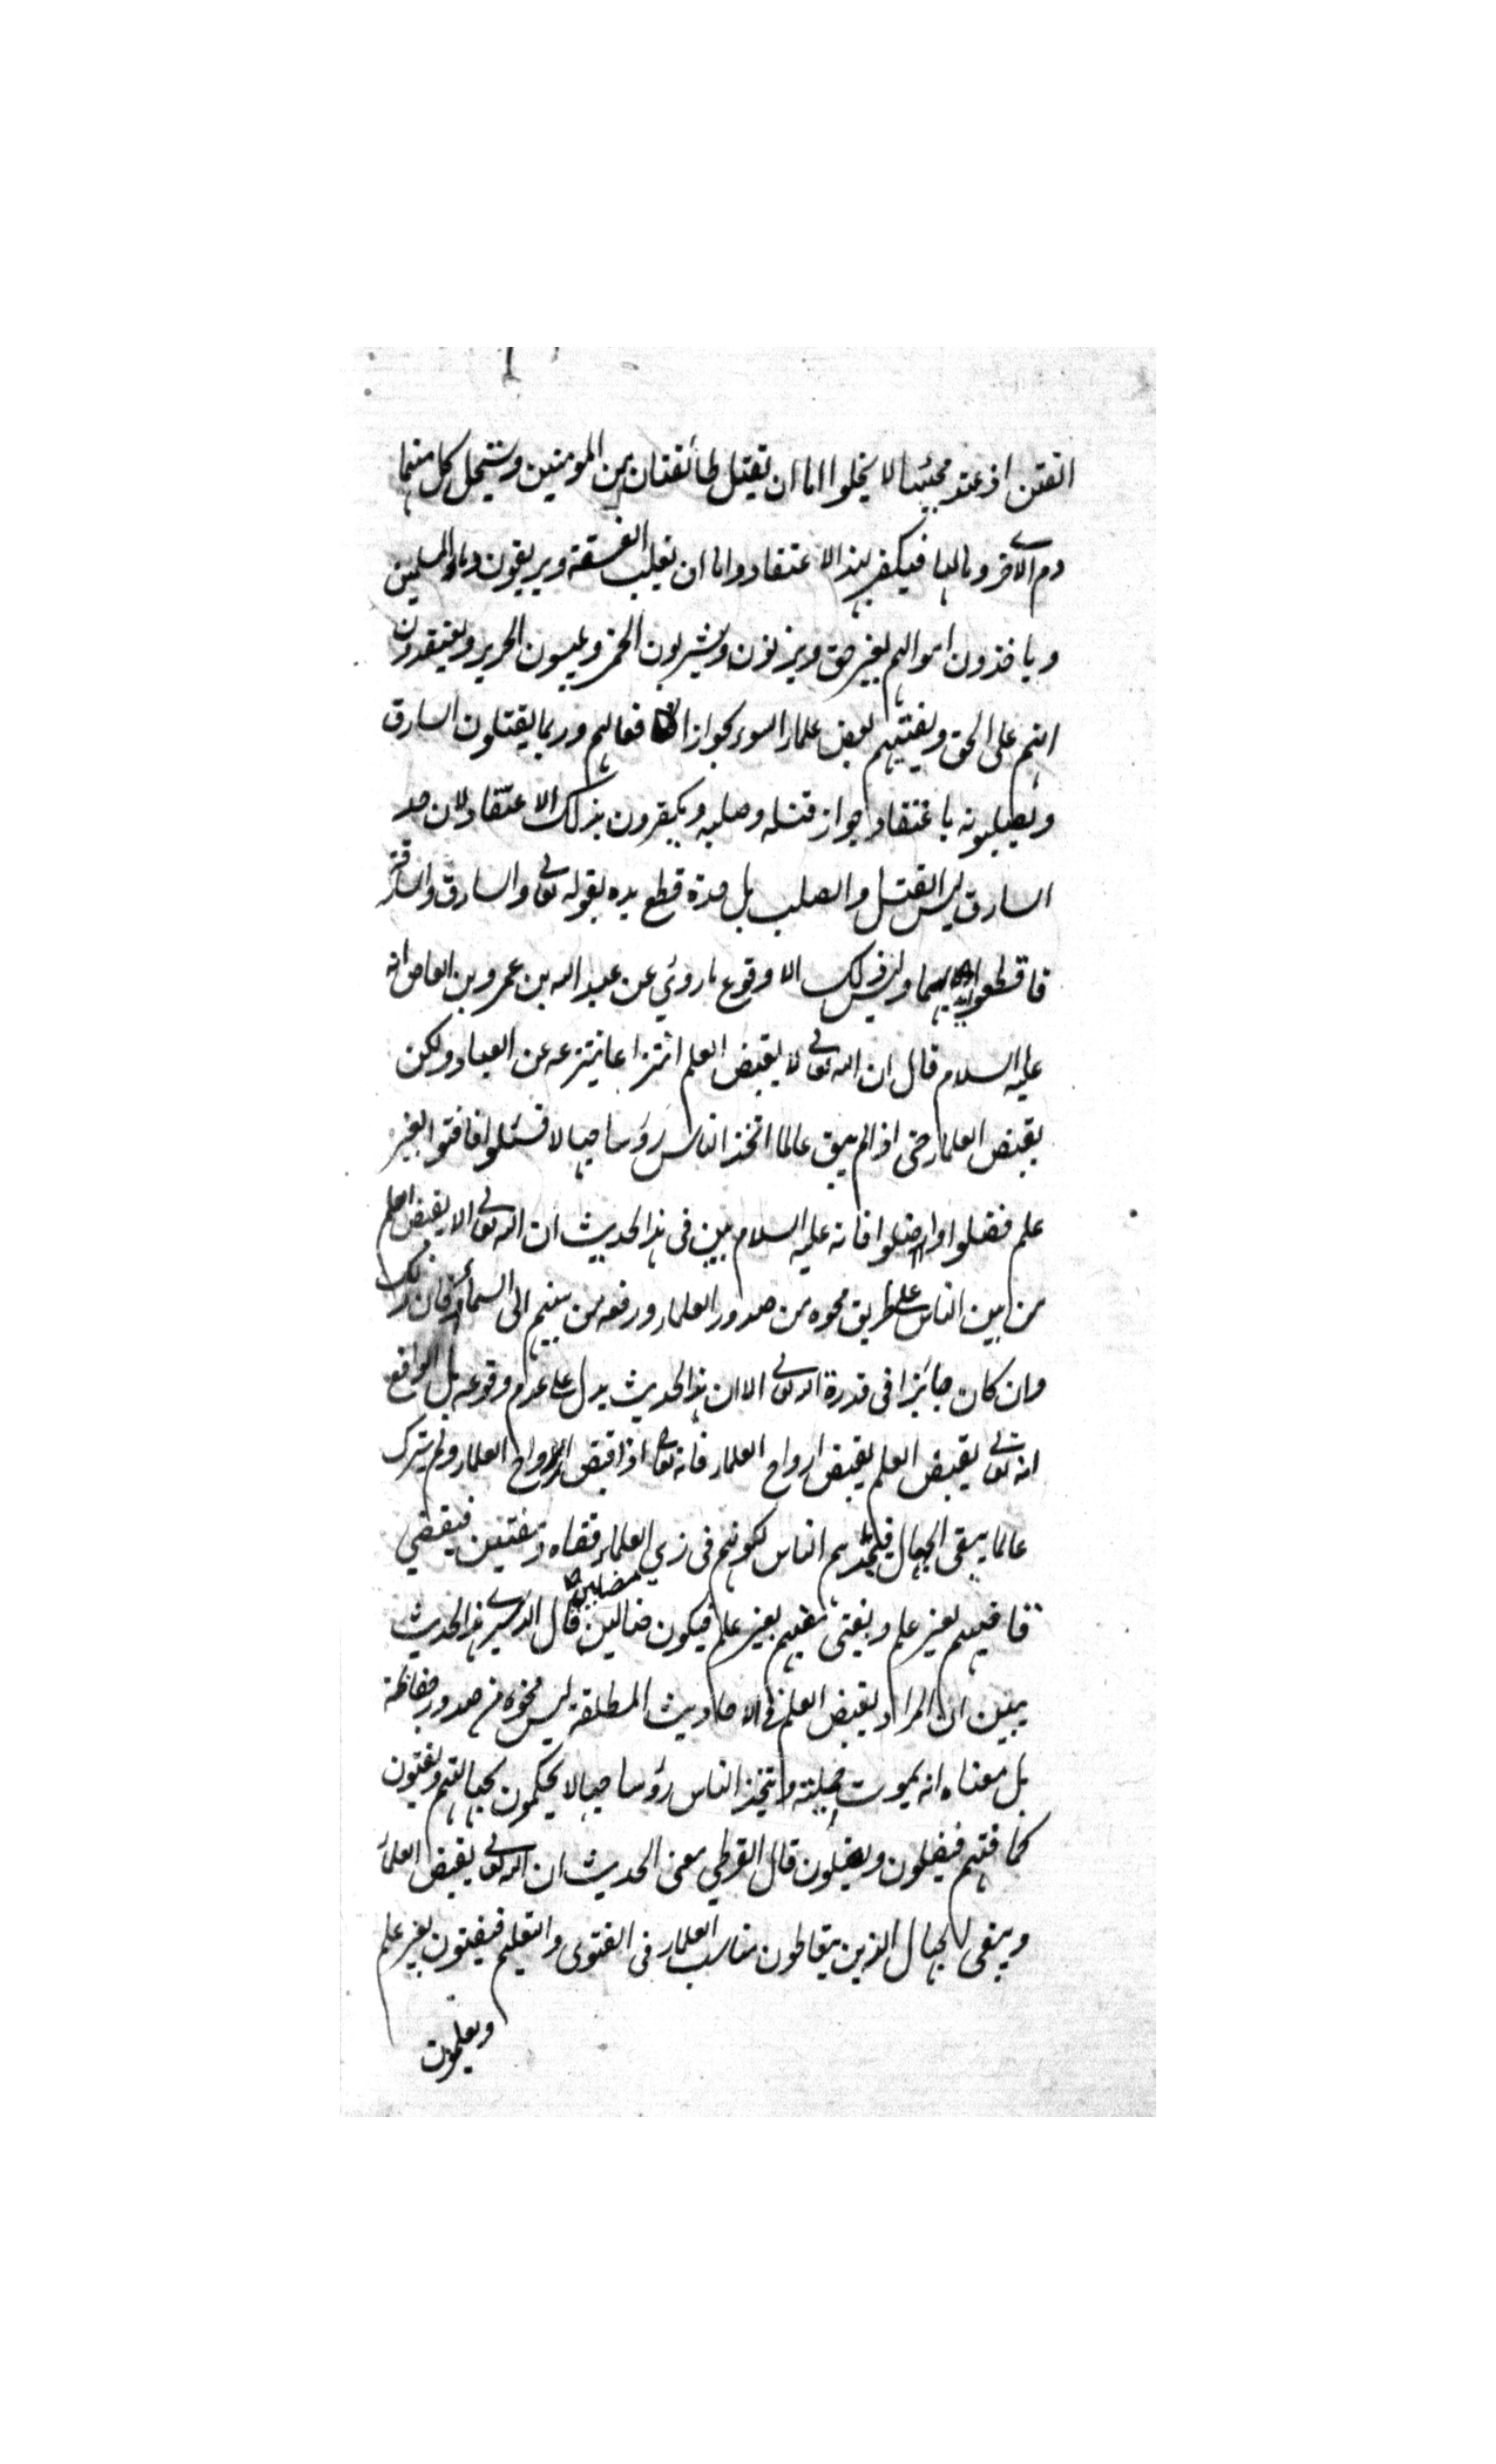 الفتن اذ عند مجيئها لا يخلوا اما ان تقتل طائفتان من المؤمنين ويستحل كل منهما
دم الآخر ومالها فيكفر بهذا الاعتقاد واما ان تغلب الفسقة ويريقون دماء المسلمين
وياخذون اموالهم بغير حق ويزنون ويشربون الخمر ويلبسون الحرير ويعتقدون
انهم على الحق ويفتيهم بعض علماء السوء بجواز افعالهم وربما يقتلون السارق
ويصلبونه باعتقاد جواز قتله وصلبه ويكفرون بذلك الاعتقاد لان حد
السارق ليس القتل والصلب بل حده قطع يده بقوله تعالى والسارق والسارقة
فاقطعوا ايديهما وليس ذلك الا وقوع ما روي عن عبد الله بن عمرو بن العاص انه
عليه السلام قال ان الله تعالى لا يقبض العلم انتزاعا ينتزعه عن العباد ولكن
بقبض العلماء حتى اذا لم يبق عالما اتخذ الناس رؤسا جهالا فسئلوا فافتوا بغير
علم فضلوا واضلوا فانه عليه السلام بين في هذا الحديث ان الله تعالى لا يقبض العلم
من بين الناس على طريق محوه من صدور العلماء ورفعه من بينهم الى السماء فان ذلك
وان كان جائزا في قدرة الله تعالى الا ان هذا الحديث يدل على عدم وقوعه بل الواقع
انه تعالى يقبض العلم بقبض ارواح العلماء فانه تعالى اذا قبض ارواح العلماء ولم يترك
عالما يبقى الجهال فيتخذهم الناس لكونهم في زي العلماء قضاه ومفتين فيقضي
قاضيهم بغير علم ويفتي مفتيهم بغير علم فيكون ضالين مضلين قال النووي هذا الحديث
يبين ان المراد بقبض العلم في الاحاديث المطلقة ليس محوه من صدور حفاظه
بل معناه انه يموت حملته ويتخذ الناس رؤسا جهالا يحكمون بجهالتهم ويفتيون
بحماقتهم فيضلون ويضلون قال القرطبي معنى الحديث ان الله تعالى يقبض العلماء
ويبقى الجهال الذين يتعاطون مناسب العلماء في الفتوى والتعليم فيفتون بغير علم
ويعلمون